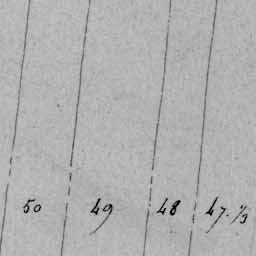 50 49 48 47. 1/3